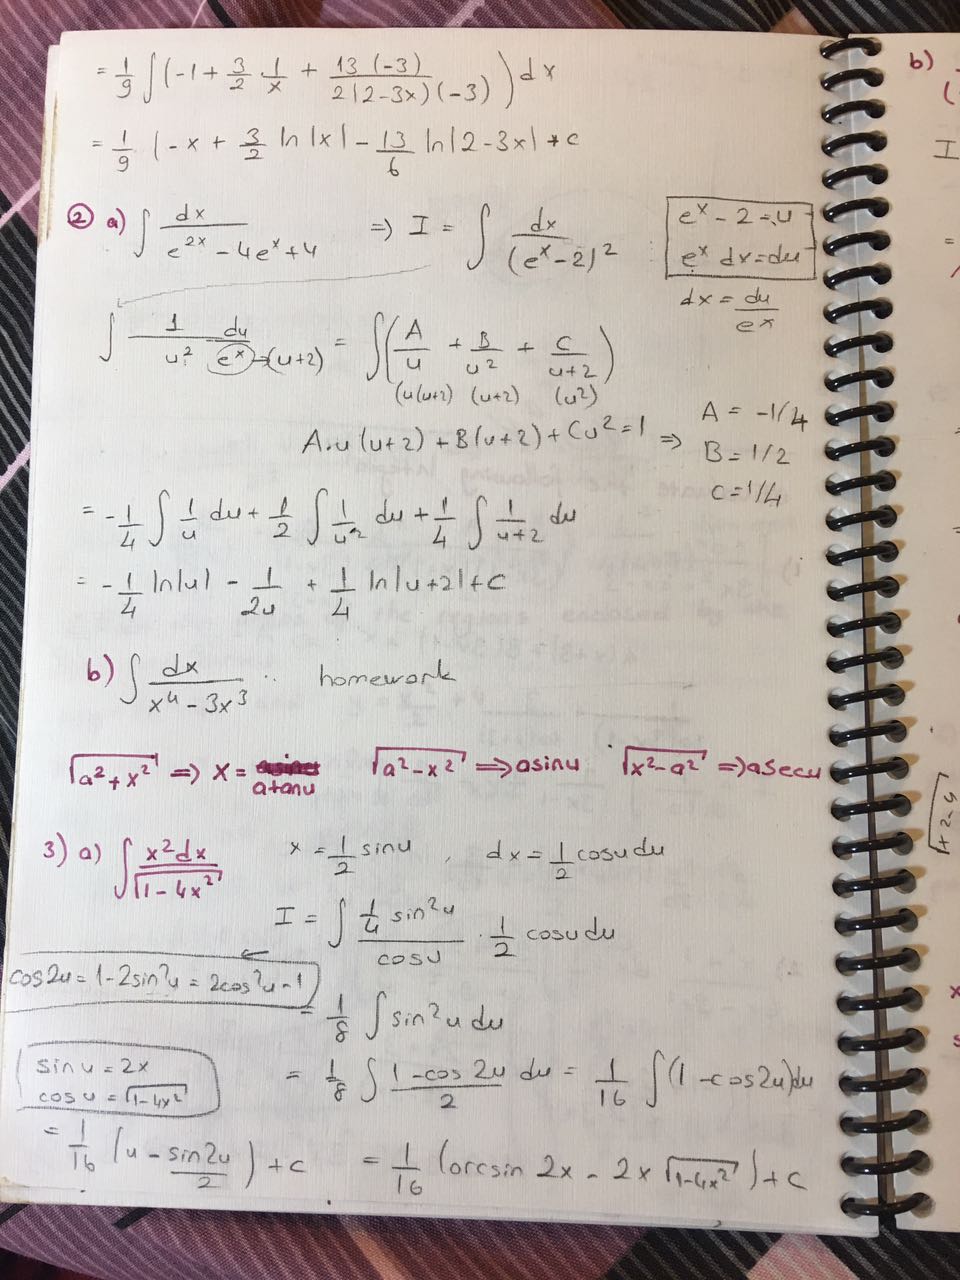 = 1/9 ∫(-1 + 3/2 · 1/x + 13(-3)/2(2-3x)(-3)) dx
= 1/9 (-x + 3/2 ln|x| - 13/6 ln|2-3x| + c
② a) ∫ dx/(e^2x - 4e^x + 4) => I = ∫ dx/(e^x - 2)^2
e^x - 2 = u
e^x dx = du
dx = du/e^x
∫ 1/u^2 du/e^x → (u+2) = ∫(A/u + B/u^2 + C/(u+2))
(u(u+2) (u+2) (u^2)
A.u(u+2) + B(u+2) + Cu^2 = 1 =>
A = -1/4
B = 1/2
C = 1/4
= -1/4 ∫ 1/u du + 1/2 ∫ 1/u^2 du + 1/4 ∫ 1/(u+2) du
= -1/4 ln|u| - 1/2u + 1/4 ln|u+2| + c
b) ∫ dx/(x^4 - 3x^3) homework
√(a^2 + x^2) => x = atanu √(a^2 - x^2) => asinu √(x^2 - a^2) => asecu
3) a) ∫ x^2dx/√(1-4x^2) x = 1/2 sinu, dx = 1/2 cosu du
I = ∫ (1/4 sin^2u)/cosu · 1/2 cosu du
cos2u = 1-2sin^2u = 2cos^2u - 1
= 1/8 ∫ sin^2u du
sinu = 2x
cosu = √(1-4x^2)
= 1/8 ∫ (1-cos2u)/2 du = 1/16 ∫(1-cos2u)du
= 1/16 (u - sin2u/2) + c = 1/16 (arcsin 2x - 2x √(1-4x^2)) + c
b)
I
=